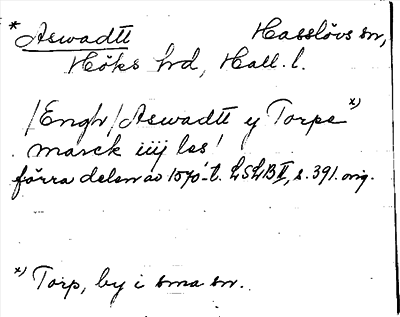 * Aswadtt Hasslövs sn,
Höks hrd, Hall. l.
/Engh/ Aswadtt y Torpe *)
marck iiij les!
förra delen av 1570-t. LSLB II, s. 391. orig.
*) Torp, by i sma sn.